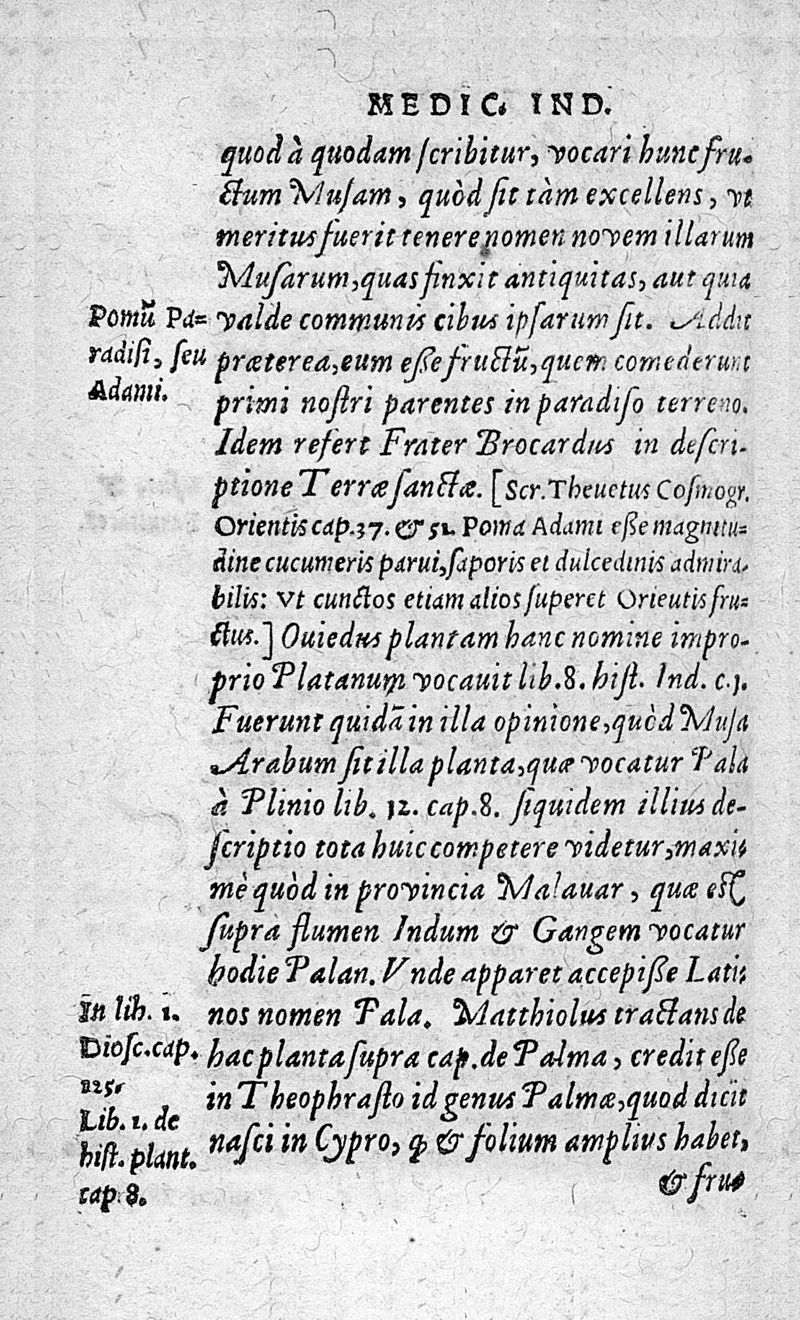 MEDIC. IND.
quod à quodam ſcribitur, vocari hunc fru-
ctum Muſam, quòd ſit tàm excellens, vt
meritus fuerit tenere nomen novem illarum
Muſarum, quas finxit antiquitas, aut quia
Pomũ Pa=
radiſi, ſeu
Adami.
valde communis cibus ipſarum ſit. Addit
præterea, eum eſſe fructũ, quem comederunt
primi noſtri parentes in paradiſo terreno.
Idem refert Frater Brocardus in deſcri-
ptione Terræ ſanctæ. [Scr. Theuetus Coſmogr.
Orientis cap. 37. & 51. Poma Adami eſſe magnitu=
dine cucumeris parui, ſaporis et dulcedinis admira-
bilis: vt cunctos etiam alios ſuperet Orieutis fru=
ctus.] Ouiedus plantam hanc nomine impro-
prio Platanum vocauit lib. 8. hiſt. Ind. c. 1.
Fuerunt quidã in illa opinione, quòd Muſa
Arabum ſit illa planta, quæ vocatur Pala
à Plinio lib. 12. cap. 8. ſiquidem illius de-
ſcriptio tota huic competere videtur, maxi-
mè quòd in provincia Malauar, quæ eſt
ſupra flumen Indum & Gangem vocatur
hodie Palan. Vnde apparet accepiſſe Lati-
In lib. 1.
Dioſc. cap.
125.
Lib. 1. de
hiſt. plant.
cap. 8.
nos nomen Pala. Matthiolus tractans de
hac planta ſupra cap. de Palma, credit eſſe
in Theophraſto id genus Palmæ, quod dicit
naſci in Cypro, ꝙ & folium amplius habet,
& fru-